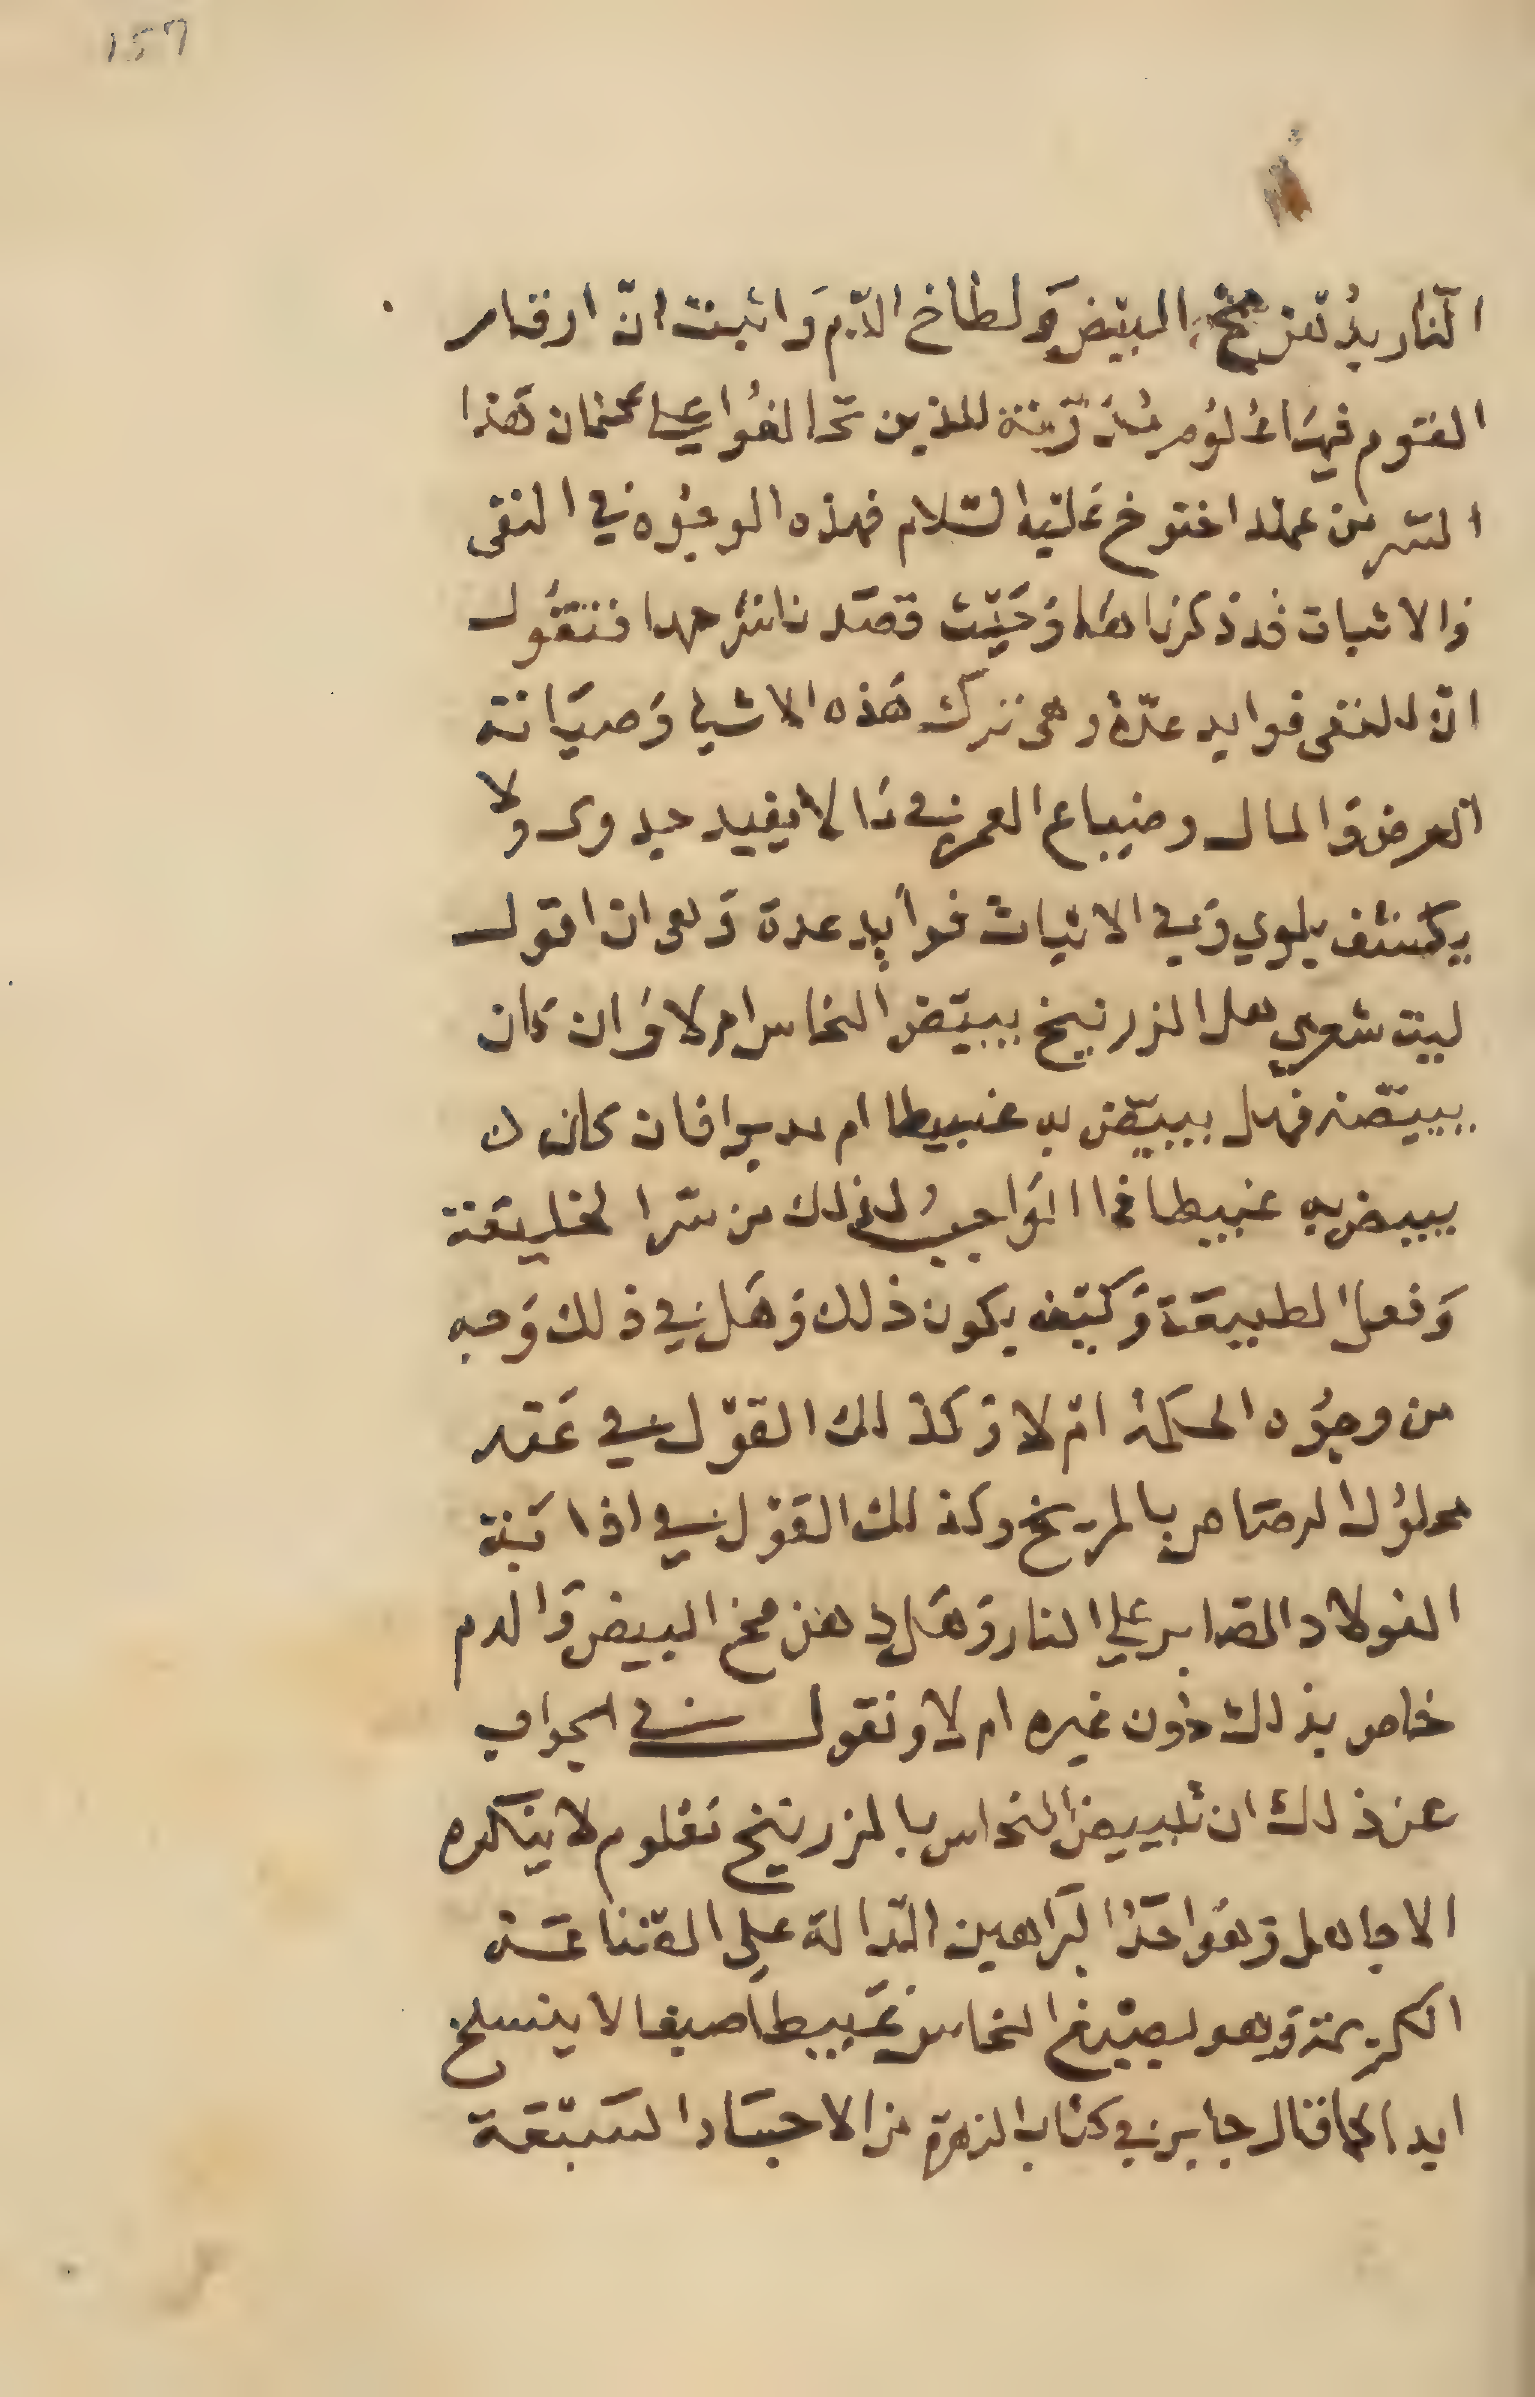 157
النار بدهن مخ البيض ولطاخ الدم واثبت ان ارقام
القوم فيها لوم للذين تحالفوا على كتمان هذا
السر من عهد اخنوخ عليه السلام فهذه الوجوه في النفي
والاثبات قد ذكرناها وحيث قصدنا شرحها فنقول
ان للنفي فوايد عدة وهى ترك هذه الاشيا وصيانة
العرض والمال وضياع العمر في ما لا يفيد جدوى ولا
يكشف بلوي وفي الاثبات فوايد عدة وهى ان اقول
ليت شعري هل الزرنيخ يبيض النحاس ام لا وان كان
يبيضه فهل يبيض به عنبيطا ام مدبرا فان كان
يبيض به عنبيطا فما الواجب لذلك من سر الخليقة
وفعل الطبيعة وكيف يكون ذلك وهل في ذلك وجه
من وجوه الحكمة ام لا وكذلك القول في عقد
محلول الرصاص بالمريخ وكذلك القول في اذابة
الفولاد الصابر على النار وهل دهن مخ البيض والدم
خاص بذلك دون غيره ام لا ونقول في الجواب
عن ذلك ان تبييض النحاس بالزرنيخ معلوم لا ينكره
الا جاهل وهو احد البراهين الدالة على الصناعة
الكريمة وهو يصبغ النحاس عبيطا صبغا لا ينسلخ
ابدا كما قال جابر في كتاب الزهرة من الاجساد السبعة